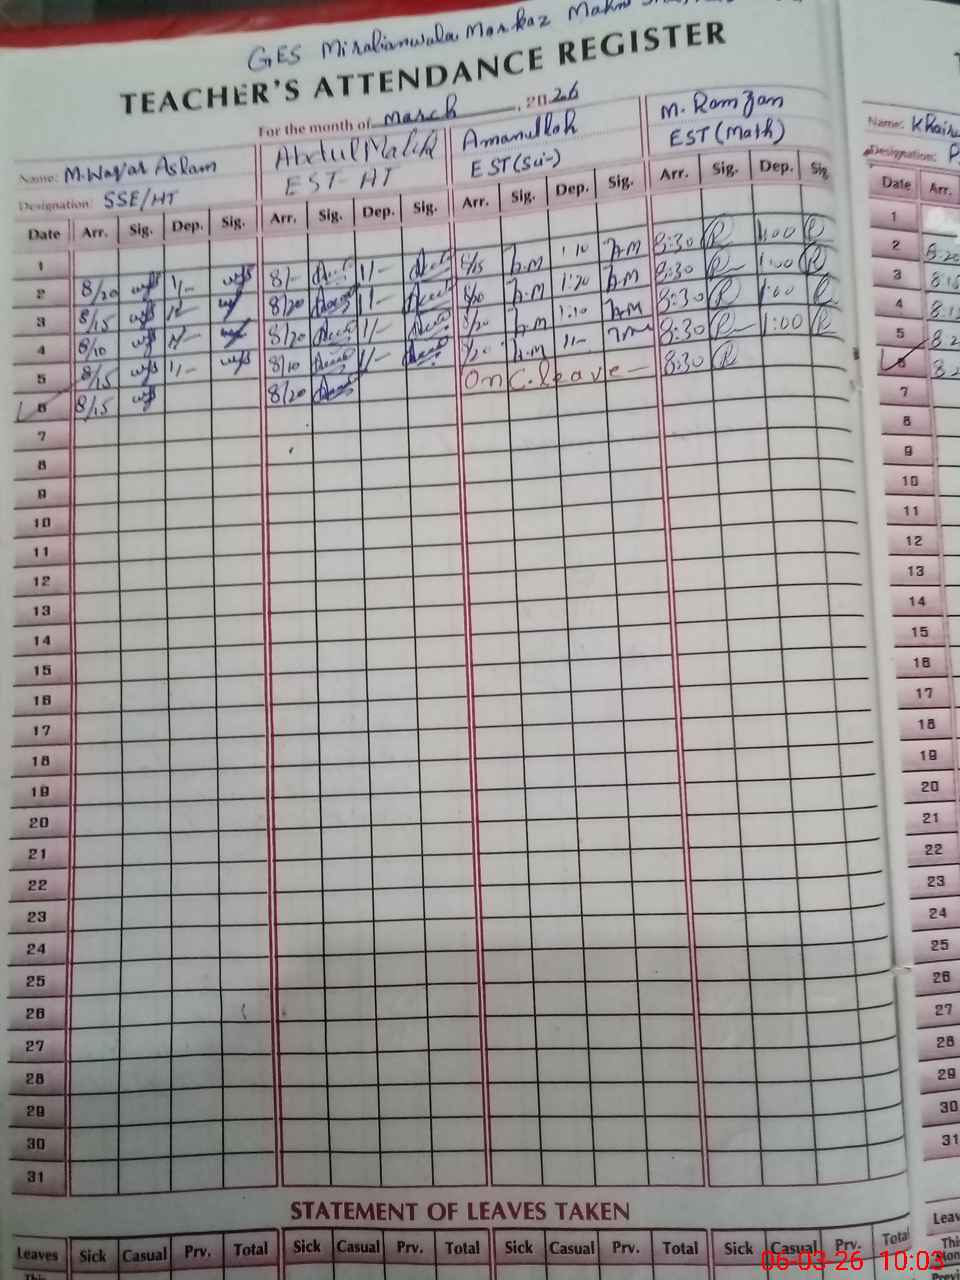 GES Miralianwala Markaz
TEACHER'S ATTENDANCE REGISTER
For the month of March, 2026
Name: M. Waqar Aslam Abdul Malik Amanullah M. Ramzan
Designation: SSE/HT EST-HT EST (Sci-) EST (Math)
Date Arr. Sig. Dep. Sig. Arr. Sig. Dep. Sig. Arr. Sig. Dep. Sig. Arr. Sig. Dep. Sig.
1
2 8/20 1/- 8/- 1/- A.M 1:10 A.M 8:30 1:00
3 8/15 8/20 1/- A.M 1:20 A.M 8:30 1:00
4 8/10 8/20 1/- A.M 1:10 A.M 8:30 1:00
5 8/15 1/- 8/10 1/- A.M 8:30 1:00
6 8/15 8/20 On C. leave - 8:30
7
8
9
10
11
12
13
14
15
16
17
18
19
20
21
22
23
24
25
26
27
28
29
30
31
STATEMENT OF LEAVES TAKEN
Leaves Sick Casual Prv. Total Sick Casual Prv. Total Sick Casual Prv. Total Sick Casual Prv. Total
Name:
Designation:
Date Arr.
1
2 8:20
3 8:15
4
5
6
7
8
9
10
11
12
13
14
15
16
17
18
19
20
21
22
23
24
25
26
27
28
29
30
31
06-03-26 10:03